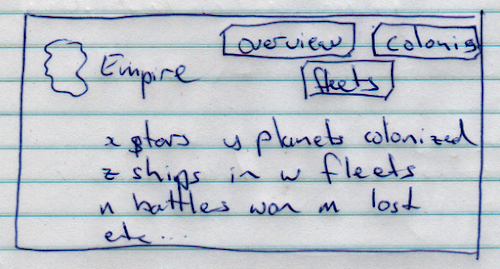 overview colonies
Empire
fleets
x stars y planets colonized
z ships in w fleets
n battles won m lost
etc...